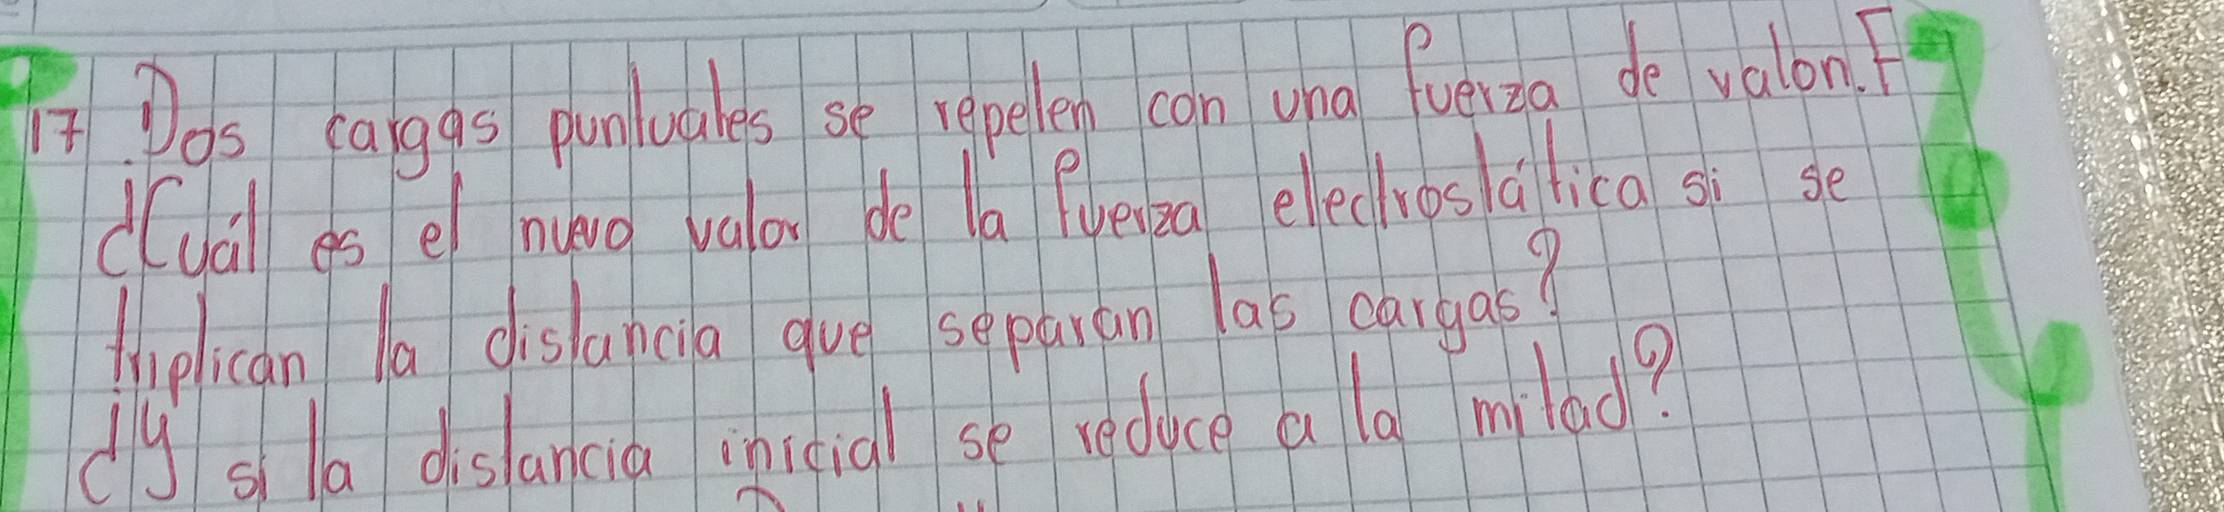 17. Dos cargas puntuales se repelen con una fuerza de valor. F
¿Cuál es el nuevo valor de la fuerza electrostática si se
triplican la distancia que separan las cargas?
¿y si la distancia inicial se reduce a la mitad?